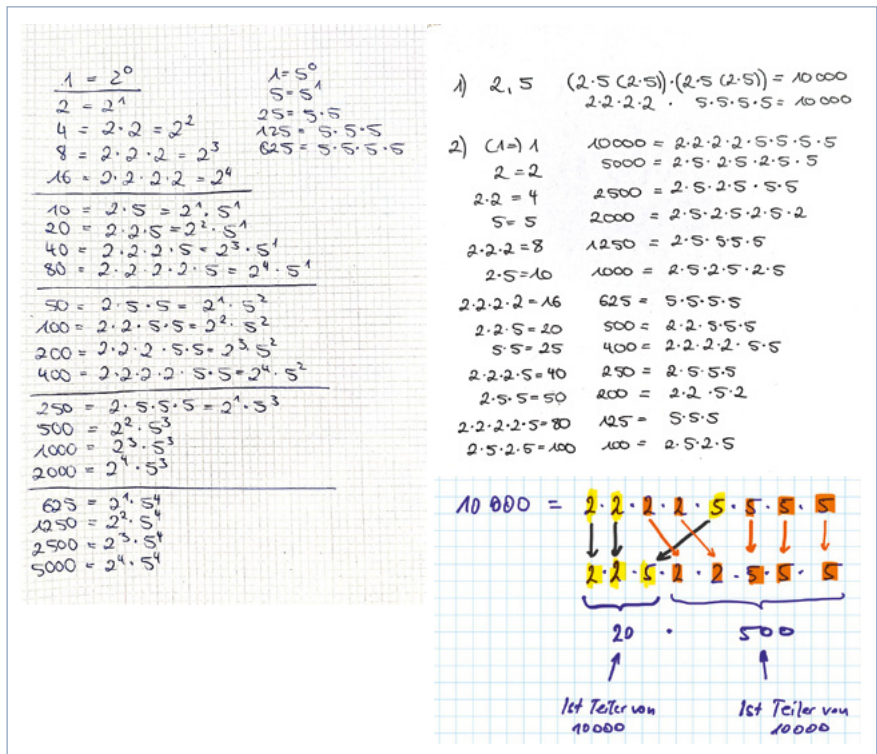 1 = 2⁰
2 = 2¹
4 = 2·2 = 2²
8 = 2·2·2 = 2³
16 = 2·2·2·2 = 2⁴
1 = 5⁰
5 = 5¹
25 = 5·5
125 = 5·5·5
625 = 5·5·5·5
10 = 2·5 = 2¹·5¹
20 = 2·2·5 = 2²·5¹
40 = 2·2·2·5 = 2³·5¹
80 = 2·2·2·2·5 = 2⁴·5¹
50 = 2·5·5 = 2¹·5²
100 = 2·2·5·5 = 2²·5²
200 = 2·2·2·5·5 = 2³·5²
400 = 2·2·2·2·5·5 = 2⁴·5²
250 = 2·5·5·5 = 2¹·5³
500 = 2²·5³
1000 = 2³·5³
2000 = 2⁴·5³
625 = 2¹·5⁴
1250 = 2²·5⁴
2500 = 2³·5⁴
5000 = 2⁴·5⁴
1) 2,5 (2·5 (2·5))·(2·5 (2·5)) = 10 000
2·2·2·2 · 5·5·5·5 = 10 000
2) (1=) 1 10000 = 2·2·2·2·5·5·5·5
2 = 2 5000 = 2·5·2·5·2·5·5
2·2 = 4 2500 = 2·5·2·5·5·5
5 = 5 2000 = 2·5·2·5·2·5·2
2·2·2 = 8 1250 = 2·5·5·5·5
2·5 = 10 1000 = 2·5·2·5·2·5
2·2·2·2 = 16 625 = 5·5·5·5
2·2·5 = 20 500 = 2·2·5·5·5
5·5 = 25 400 = 2·2·2·2·5·5
2·2·2·5 = 40 250 = 2·5·5·5
2·5·5 = 50 200 = 2·2·5·2
2·2·2·2·5 = 80 125 = 5·5·5
2·5·2·5 = 100 100 = 2·5·2·5
10 000 = 2·2·2·2·5·5·5·5
2·2·5·2·2·5·5·5
20 · 500
Ist Teiler von 10000
Ist Teiler von 10000